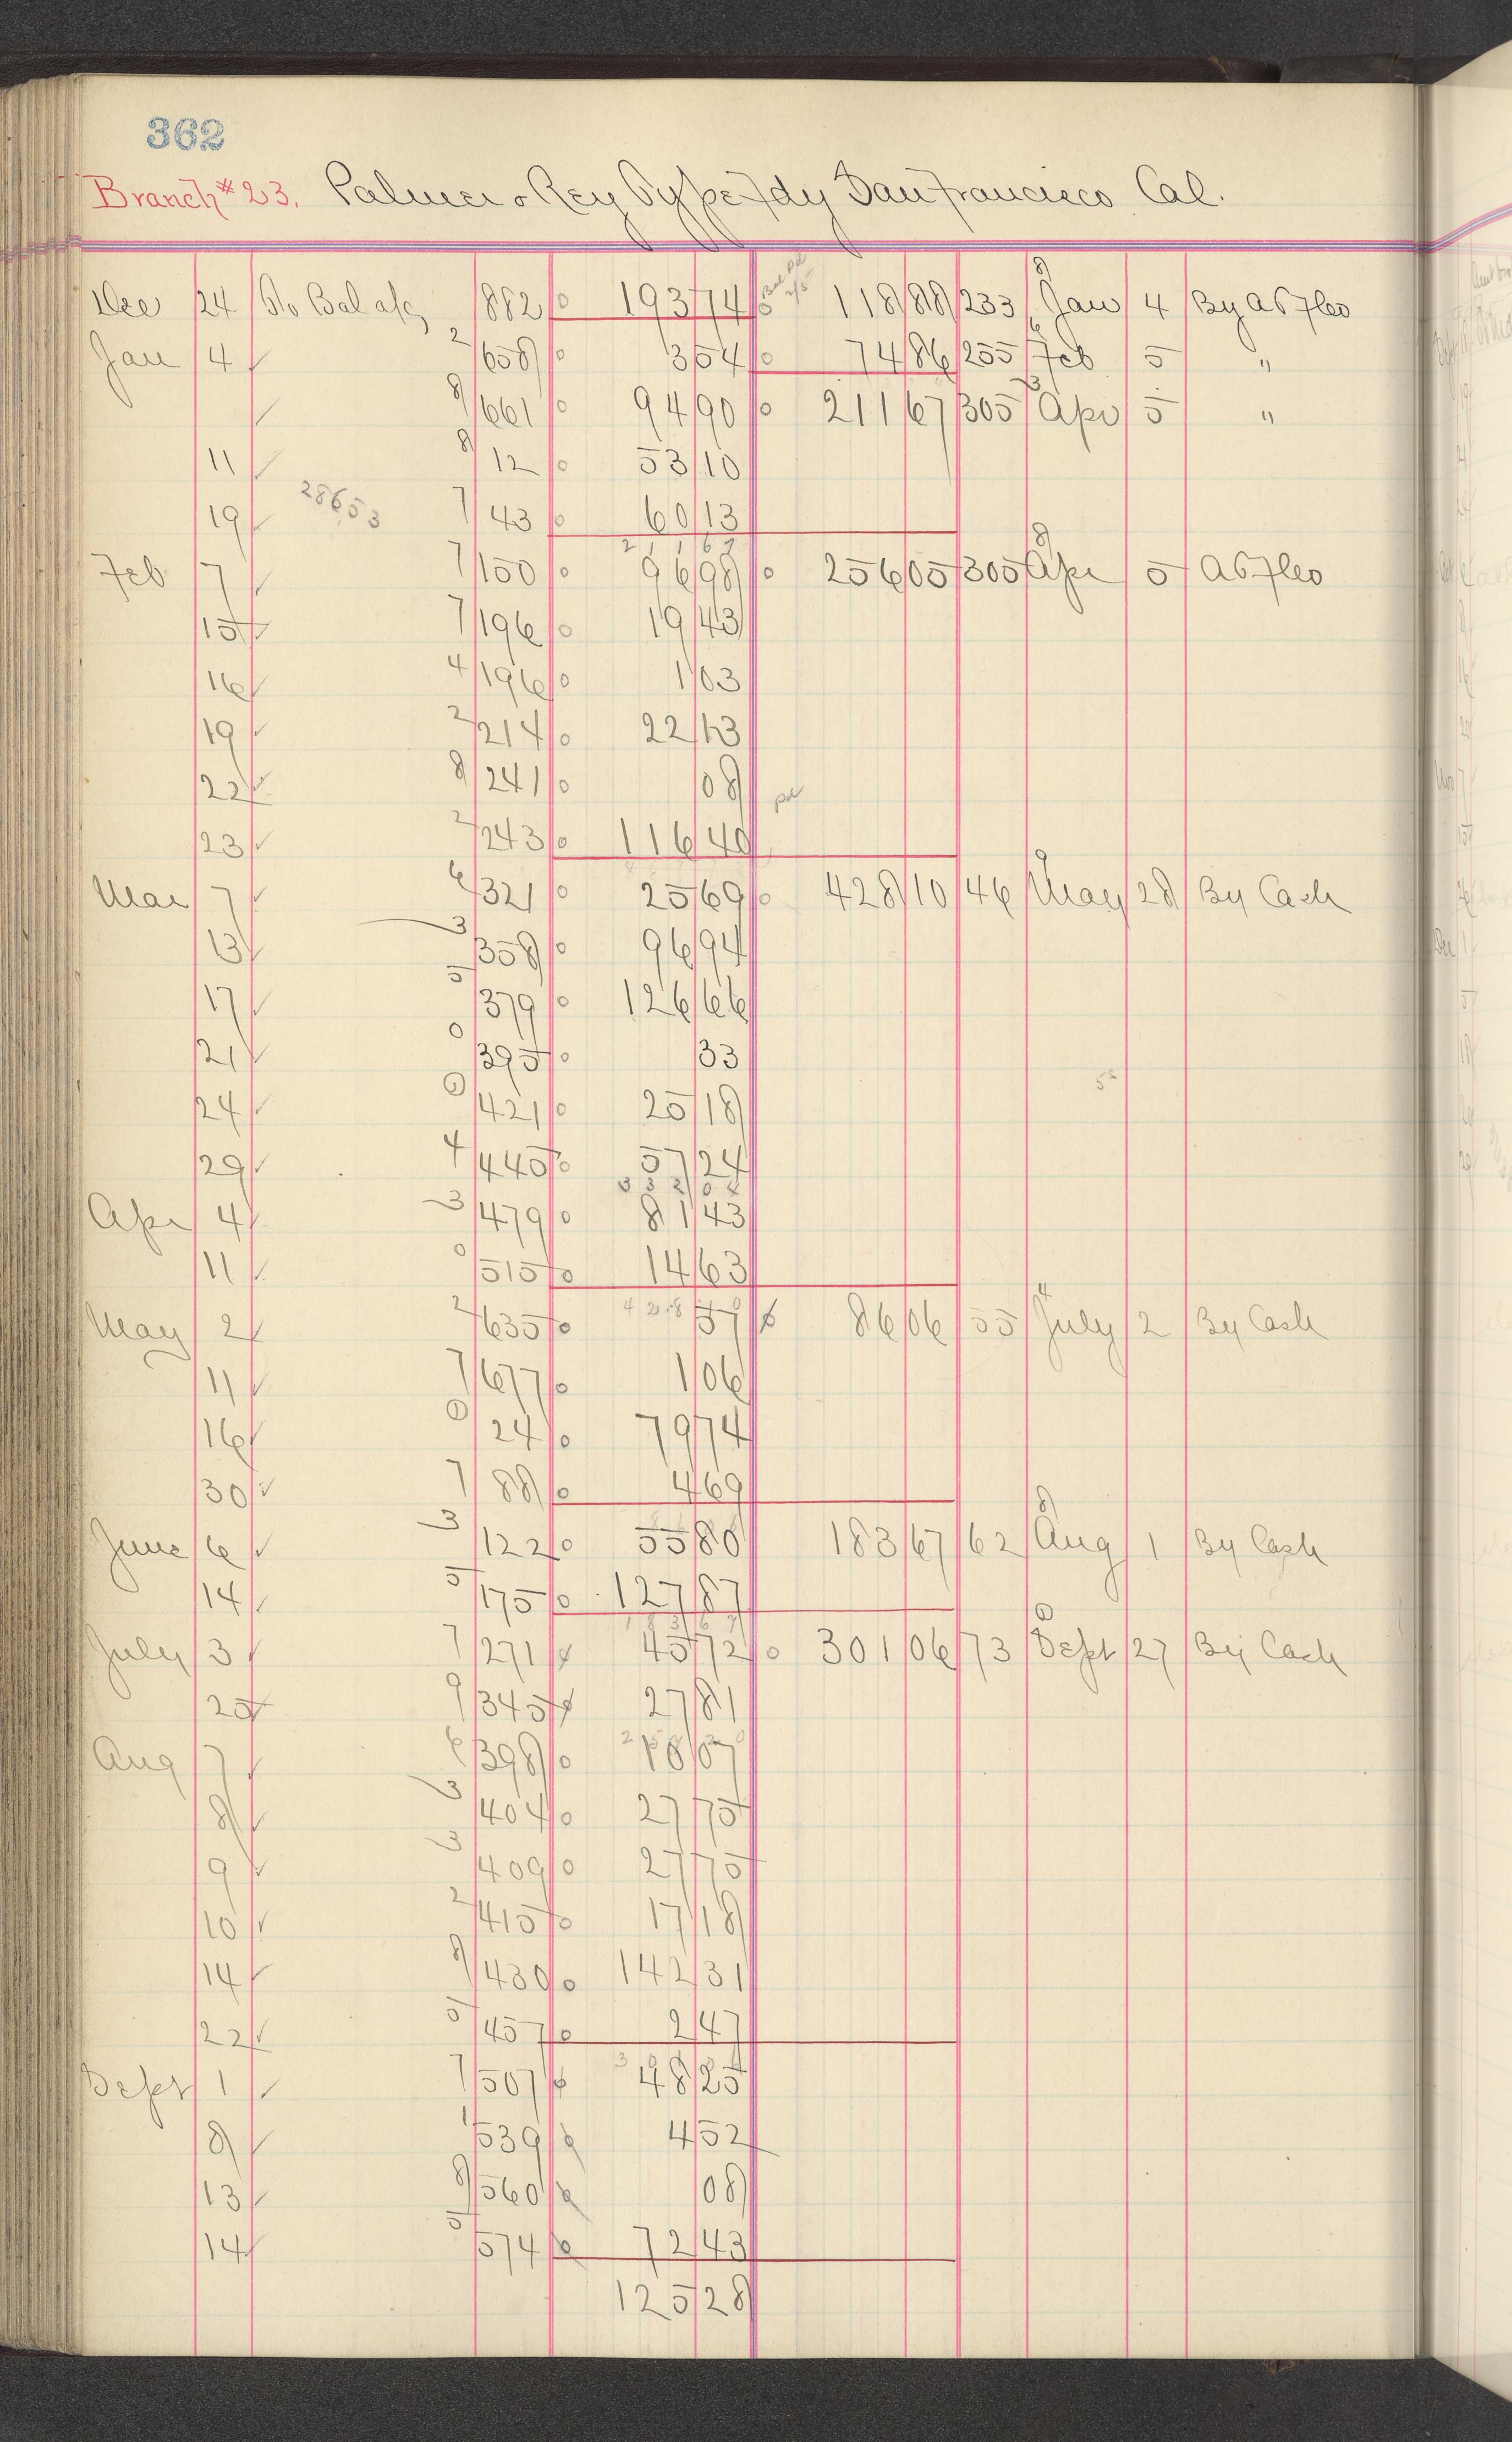 362
Branch #23. Palmer & Rey Type Fdy San Francisco Cal.
Dec 24 To Bal a/c 882 193 74 118 88 233 8 Jan 4 By ABFCo
Jan 4 2/658 3 54 74 86 255 6 Feb 5 "
8/661 94 90 211 67 305 3 Apr 5 "
11 8/12 53 10
28653
19 7/43 60 13
2 1 1 6 7
Feb 7 7/150 96 98 256 05 305 8 Apr 5 ABFCo
15 7/196 19 43
16 4/196 1 03
19 2/214 22 13
22 8/241 08 pd
23 2/243 116 40
Mar 7 6/321 25 69 428 10 46 9 May 28 By Cash
13 3/358 96 94
17 5/379 126 66
21 0/395 33
24 0/421 25 18
29 4/445 57 24
3 3 2 0 4
Apr 4 3/479 81 43
11 0/515 14 63
May 2 2/635 57 86 06 55 4 July 2 By Cash
11 7/677 1 06
16 0/24 79 74
30 7/88 4 69
June 6 3/122 55 80 183 67 62 8 Aug 1 By Cash
14 5/175 127 87
July 3 7/271 45 72 301 06 73 0 Sept 27 By Cash
25 9/345 27 81
Aug 7 6/398 10 07
8 3/404 27 75
9 3/409 27 75
10 2/415 17 18
14 8/430 142 31
22 5/457 2 47
Sept 1 7/507 48 25
8 1/539 4 52
13 8/560 08
14 5/574 72 43
125 28